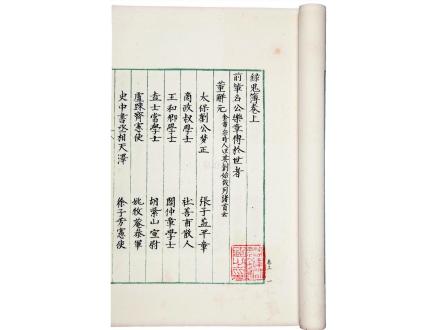 錄鬼簿卷上
前輩名公樂章傳於世者
董解元 金章宗時人以其創始故列諸首云
太保劉公夢正 張子益平章
商政叔學士 杜善甫散人
王和卿學士 閻仲章學士
盍士常學士 胡紫山宣尉
盧疎齋憲使 姚牧菴參軍
史中書丞相天澤 徐子芳憲使
卷上 一